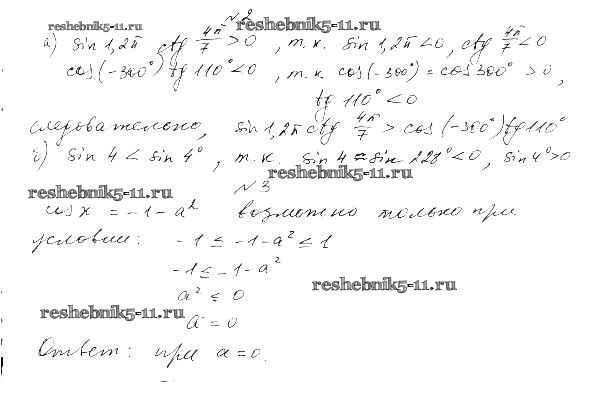 № 2
reshebnik5-11.ru reshebnik5-11.ru
а) sin 1,2π ctg 4π/7 > 0, т.к. sin 1,2π < 0, ctg 4π/7 < 0
cos(-300°) tg 110° < 0, т.к. cos(-300°) = cos 300° > 0,
tg 110° < 0
следовательно, sin 1,2π ctg 4π/7 > cos(-300°) tg 110°
б) sin 4 < sin 4°, т.к. sin 4 ≈ sin 228° < 0, sin 4° > 0
reshebnik5-11.ru
reshebnik5-11.ru № 3
cos x = -1 - a² возможно только при
условии: -1 ≤ -1 - a² ≤ 1
-1 ≤ -1 - a²
a² ≤ 0 reshebnik5-11.ru
reshebnik5-11.ru
a = 0
Ответ: при a = 0.